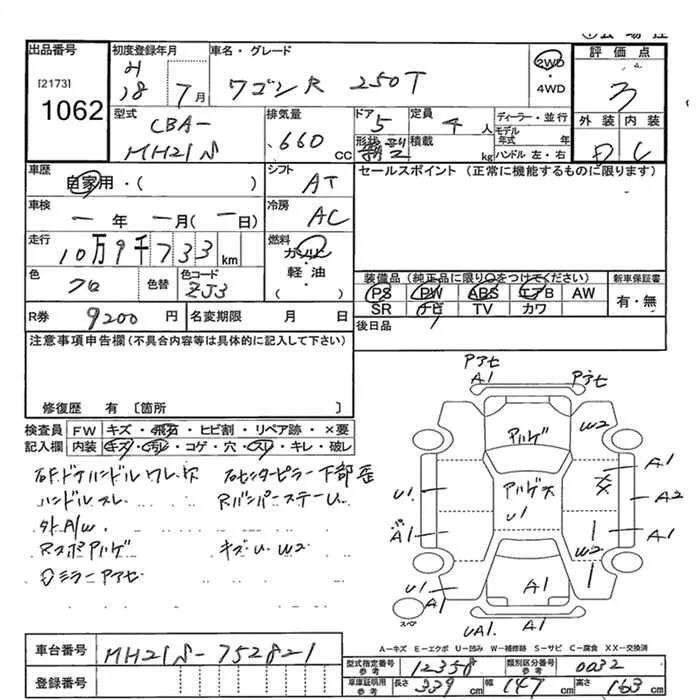 出品番号 初度登録年月 車名・グレード 評価点
[2173] H 2WD
18 7月 ワゴンR 250T ・ 4WD 3
1062
型式 排気量 ドア 5 定員 4人 ディーラー・並行 外装 内装
CBA- .660 モデル年式 年 D C
MH21S CC 形状 積載 kg ハンドル 左・右
車歴 シフト セールスポイント (正常に機能するものに限ります)
自家用・( ) AT
車検 冷房
一年 一月(一日) AC
走行 燃料
10万9千733km ガソリン・軽油
色 色替 色コード ( ) 装備品(純正品に限り○をつけてください) 新車保証書
クロ ZJ3 PS PW ABS エアB AW 有・無
SR ナビ TV カワ
R券 9200円 名変期限 月 日 後日品
注意事項申告欄(不具合内容等は具体的に記入して下さい)
修復歴 有 〔箇所 〕
検査員 FW キズ・飛石・ヒビ割・リペア跡・×要
記入欄 内装 キズ・汚レ・コゲ・穴・スレ・キレ・破レ
右F.ドアハンドルワレ.欠 右センターピラー下部歪
ハンドルスレ RバンパーステーU
外A/W
Rスポアルゲ キズU W2
ミラーアセ
アセ アセ
A1
アルゲ W2
A1
アルゲ大 XX
U1 A2
U1
A1 A1
W2
U1
A1 A1
スペア
UA1. A1
A-キズ E-エクボ U-凹み W-補修跡 S-サビ C-腐食 XX-交換済
車台番号 MH21S-752821
登録番号
型式指定番号 参考 12358 類別区分番号 参考 0032
車庫証明用 参考 長さ 339cm 幅 147cm 高さ 163cm